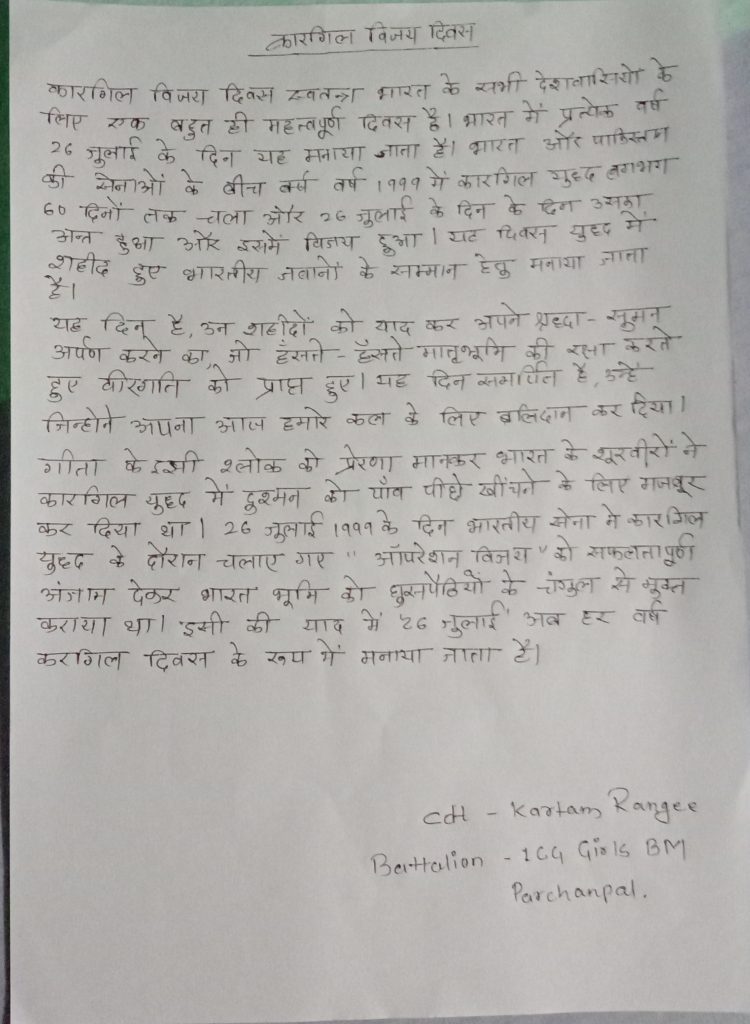 कारगिल विजय दिवस
कारगिल विजय दिवस स्वतन्त्र भारत के सभी देशवासियों के
लिए एक बहुत ही महत्वपूर्ण दिवस है। भारत में प्रत्येक वर्ष
26 जुलाई के दिन यह मनाया जाता है। भारत और पाकिस्तान
की सेनाओं के बीच वर्ष वर्ष 1999 में कारगिल युद्ध लगभग
60 दिनों तक चला और 26 जुलाई के दिन के दिन उसका
अन्त हुआ और इसमें विजय हुआ। यह दिवस युद्ध में
शहीद हुए भारतीय जवानों के सम्मान हेतु मनाया जाता
है।
यह दिन है, उन शहीदों को याद कर अपने श्रद्धा - सुमन
अर्पण करने का, जो हँसते - हँसते मातृभूमि की रक्षा करते
हुए वीरगति को प्राप्त हुए। यह दिन समर्पित है, उन्हें
जिन्होने अपना आज हमारे कल के लिए बलिदान कर दिया।
गीता के इसी श्लोक को प्रेरणा मानकर भारत के शूरवीरों ने
कारगिल युद्ध में दुश्मन को पाँव पीछे खींचने के लिए मजबूर
कर दिया था। 26 जुलाई 1999 के दिन भारतीय सेना ने कारगिल
युद्ध के दौरान चलाए गए " ऑपरेशन विजय " को सफलतापूर्ण
अंजाम देकर भारत भूमि को घुसपैठियों के चंगुल से मुक्त
कराया था। इसी की याद में '26 जुलाई' अब हर वर्ष
करगिल दिवस के रूप में मनाया जाता है।
CDT - Kartam Rangee
Battalion - 1CG Girls BN
Parchanpal.